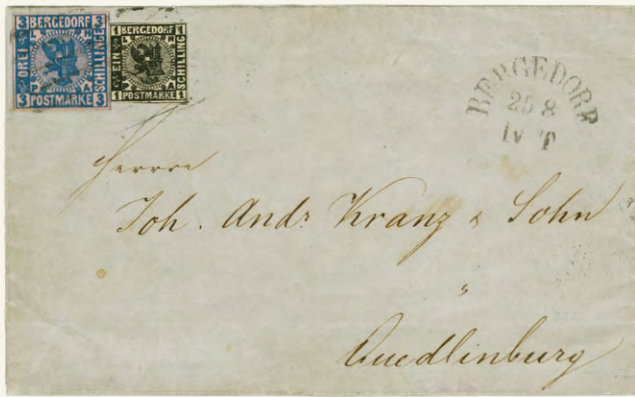 3 BERGEDORF 3
DREI
SCHILLINGE
3 POSTMARKE 3
1 BERGEDORF 1
EIN
SCHILLING
1 POSTMARKE 1
L P
H A
BERGEDORF
25 8
IV T
Herren
Joh. Andr. Kranz & Sohn
"
Quedlinburg